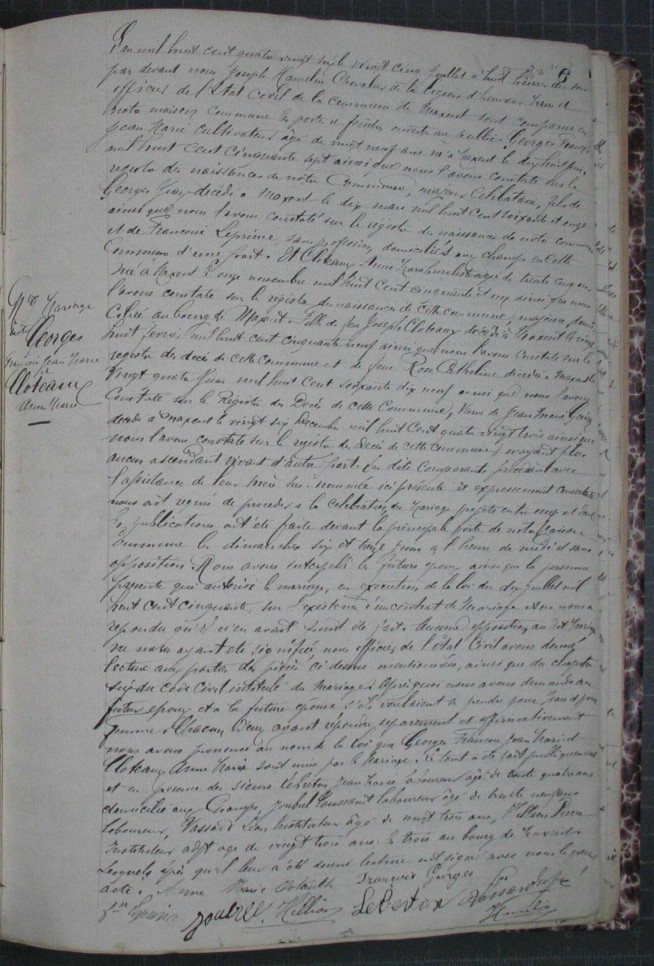 L'an mil huit cent quatre vingt six le vingt cinq juillet à huit heures du soir
par devant nous Joseph Hamelin Chevalier de la Légion d'honneur Maire et
officier de l'État Civil de la commune de Maxent sont comparus en
notre maison commune la porte et fenêtre ouverte au public Georges François
Jean Marie cultivateur âgé de vingt neuf ans né à Maxent le dix huit juin
mil huit cent cinquante sept ainsi que nous l'avons constaté sur le
registre des naissances de notre Commune, majeur Célibataire, fils de
Georges Jean décédé à Maxent le dix mars mil huit cent soixante et onze
ainsi que nous l'avons constaté sur le registre de notre commune
et de Françoise Lépinée, sans profession, domiciliés aux champs en cette
Commune d'une part. Et Cloteaux Anne Marie âgée de trente cinq ans
née à Maxent l'onze novembre mil huit cent cinquante et un ainsi que nous
l'avons constaté sur le registre de naissance de cette commune, majeure
au bourg de Maxent. Fille de feu Joseph Cloteaux décédé à Maxent le vingt
huit mil huit cent cinquante neuf ainsi que nous l'avons constaté sur le
registre de décès de cette commune et de feue Rose décédée à Maxent le
vingt quatre mil huit cent soixante dix neuf ainsi que nous l'avons
constaté sur le Registre des Décès de cette Commune, Veuve de Jean Marie
décédé à Maxent le vingt six Décembre mil huit cent quatre vingt trois ainsi que
nous l'avons constaté sur le registre de Décès de cette commune, n'ayant plus
aucun ascendant vivant d'autre part. Les dits Comparants procédant avec
l'assistance de leur mère sus-nommée ici présente et expressément consentante
nous ont requis de procéder à la célébration du Mariage projeté entre eux et dont
les publications ont été faites devant la principale porte de notre maison
commune les dimanches six et treize juin à l'heure de midi et sans
opposition. Nous avons interpellé les futurs époux ainsi que la personne
présente qui autorise le mariage, en exécution de la loi du dix juillet mil
huit cent cinquante, sur l'existence d'un contrat de Mariage. Ils nous
répondu qu'il n'en avait point été fait. Aucune opposition au dit Mariage
ne nous ayant été signifiée, nous officier de l'État Civil avons donné
lecture aux parties des pièces ci dessus mentionnées, ainsi que du chapitre
six du code Civil intitulé du Mariage. Après quoi nous avons demandé au
futur époux et à la future épouse s'ils voulaient se prendre pour mari et pour
femme. Chacun d'eux ayant répondu séparément et affirmativement
nous avons prononcé au nom de la loi que Georges François Jean Marie et
Cloteaux Anne Marie sont unis par le Mariage. Le tout a été fait publiquement
et en présence des sieurs Leberton Jean Marie laboureur âgé de trente quatre ans
domicilié aux Champs, Joubrel Toussaint laboureur âgé de trente neuf ans
laboureur, Vassard Léon Instituteur âgé de vingt trois ans, Hillion Pierre
Instituteur adjt âgé de vingt trois ans le trois au bourg de Maxent
lesquels après qu'il leur a été donné lecture ont signé avec nous le présent
acte. Anne Marie Cotault François Georges
Joubrel Hillion Leberton Vassard
Hamelin
N° Mariage
Georges
François Jean Marie
et
Cloteaux
Anne Marie